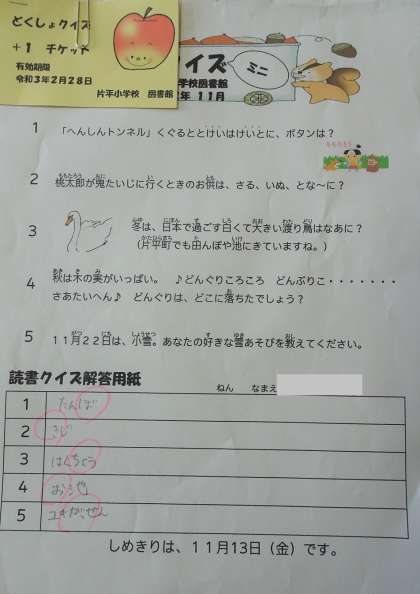 どくしょクイズ
+1 チケット
有効期限
令和3年2月28日
片平小学校 図書館
クイズ
ミニ
学校図書館
年 11月
1 「へんしんトンネル」くぐるととけいはけいとに、ボタンは?
2 桃太郎が鬼たいじに行くときのお供は、さる、いぬ、とな~に?
3 冬は、日本で過ごす白くて大きい渡り鳥はなあに?
(片平町でも田んぼや池にきていますね。)
4 秋は木の実がいっぱい。 ♪どんぐりころころ どんぶりこ・・・・・・・
さあたいへん♪ どんぐりは、どこに落ちたでしょう?
5 11月22日は、小雪。あなたの好きな雪あそびを教えてください。
読書クイズ解答用紙
ねん なまえ
1 たんぼ
2 きじ
3 はくちょう
4 おいけ
5 ゆきがっせん
しめきりは、11月13日(金)です。